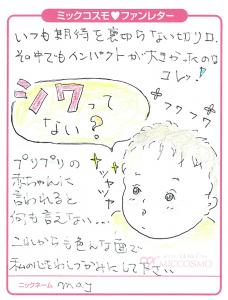 ミックコスモ♥ファンレター
いつも期待を裏切らない切り口。
その中でもインパクトが大きかったのは
コレッ!
シワって
ない?
フワフワ
プリプリの
赤ちゃんに
言われると
何も言えない...
ツヤツヤ
これからも色んな面で
私の心をわしづかみにして下さい
MICCOSMO
ニックネーム may